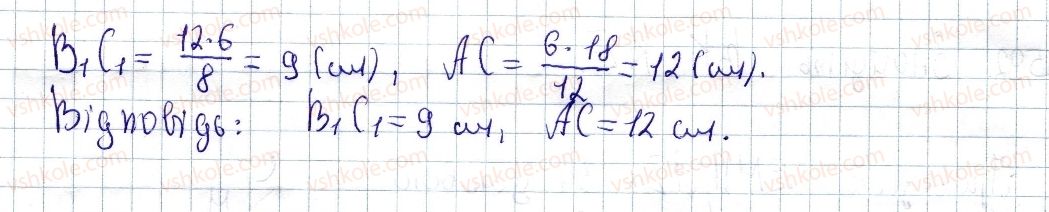 B₁C₁ = 12·6/8 = 9 (см), AC = 6·18/12 = 12 (см).
Відповідь: B₁C₁ = 9 см, AC = 12 см.